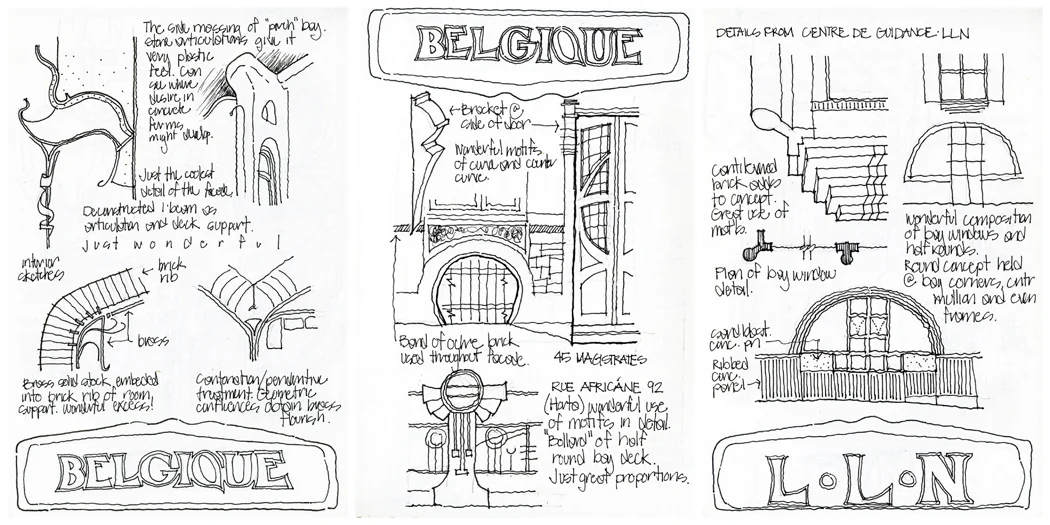 The side massing of "porch" bay.
stone articulations give it
very plastic
feel. Can
see where
desire in
concrete
forms
might develop.
Just the coolest
detail of the facade.
Deconstructed I-beam as
articulation and deck support.
Just wonderful
interior
sketches
brick
rib
brass
Brass solid stock, embeded
into brick rib of room
support. wonderful excess!
Continuation/pendentive
treatment. Geometric
confluences obtain brass
flourish.
BELGIQUE
BELGIQUE
Bracket @
side of door
wonderful motifs
of curve and counter
curve.
Band of ochre brick
used throughout facade.
45 MAGISTRATES
RUE AFRICÁNE 92
(Horta) wonderful use
of motifs in detail.
"Bollard" of half
round bay deck.
Just great proportions.
DETAILS FROM CENTRE DE GUIDANCE·LLN
brick
to concept.
Great use of
motifs.
Plan of bay window
detail.
wonderful composition
of bay windows and
half rounds.
Round concept held
@ bay corners, cntr
mullian and even
frames.
sandblast
conc. pnl
Ribbed
conc.
panel
L·L·N